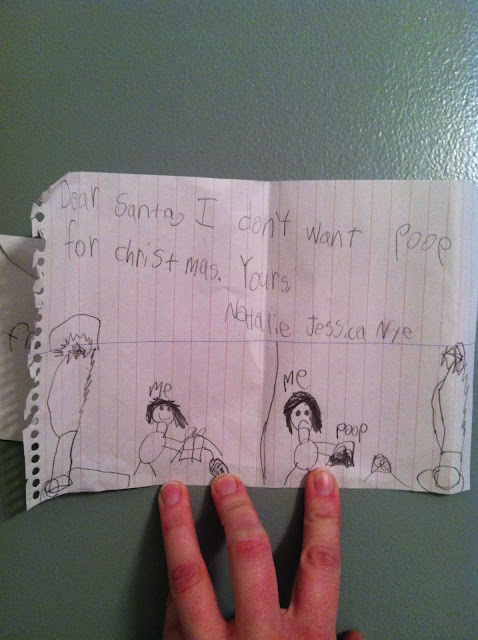 Dear Santa, I don't want poop
for christmas. Yours,
Natalie Jessica Nye
me
me
poop